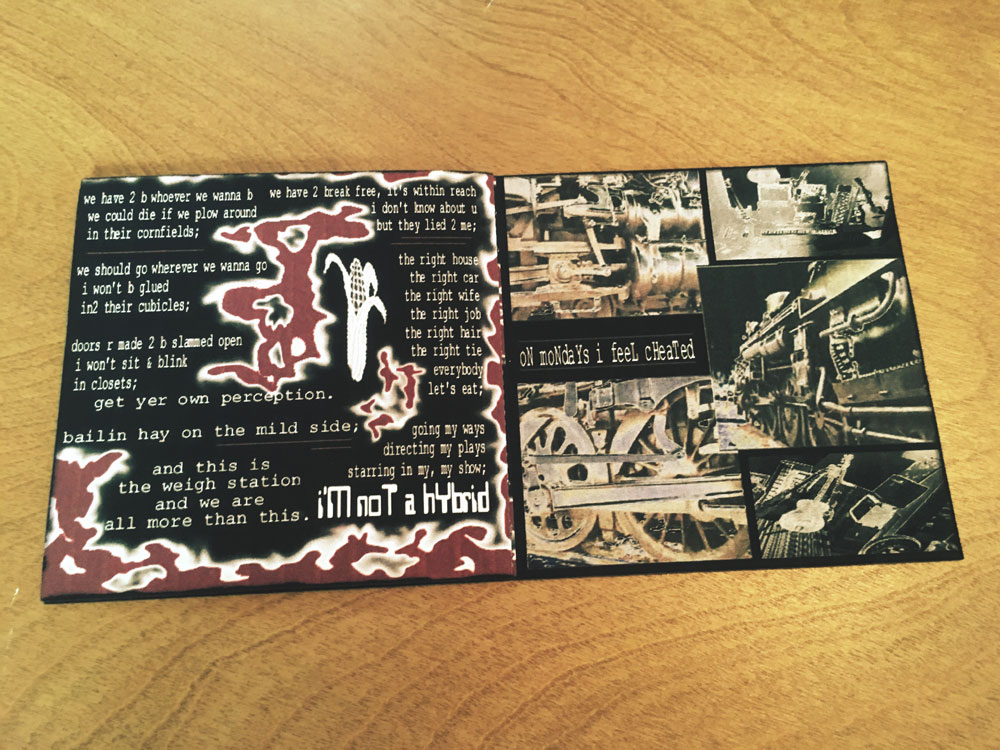 we have 2 b whoever we wanna b
we could die if we plow around
in their cornfields;
we should go wherever we wanna go
i won't b glued
in2 their cubicles;
doors r made 2 b slammed open
i won't sit & blink
in closets;
get yer own perception.
bailin hay on the mild side;
and this is
the weigh station
and we are
all more than this.
we have 2 break free, it's within reach
i don't know about u
but they lied 2 me;
the right house
the right car
the right wife
the right job
the right hair
the right tie
everybody
let's eat;
going my ways
directing my plays
starring in my, my show;
i'M noT a hYbrid
oN moNdaYs i feeL cHeaTed